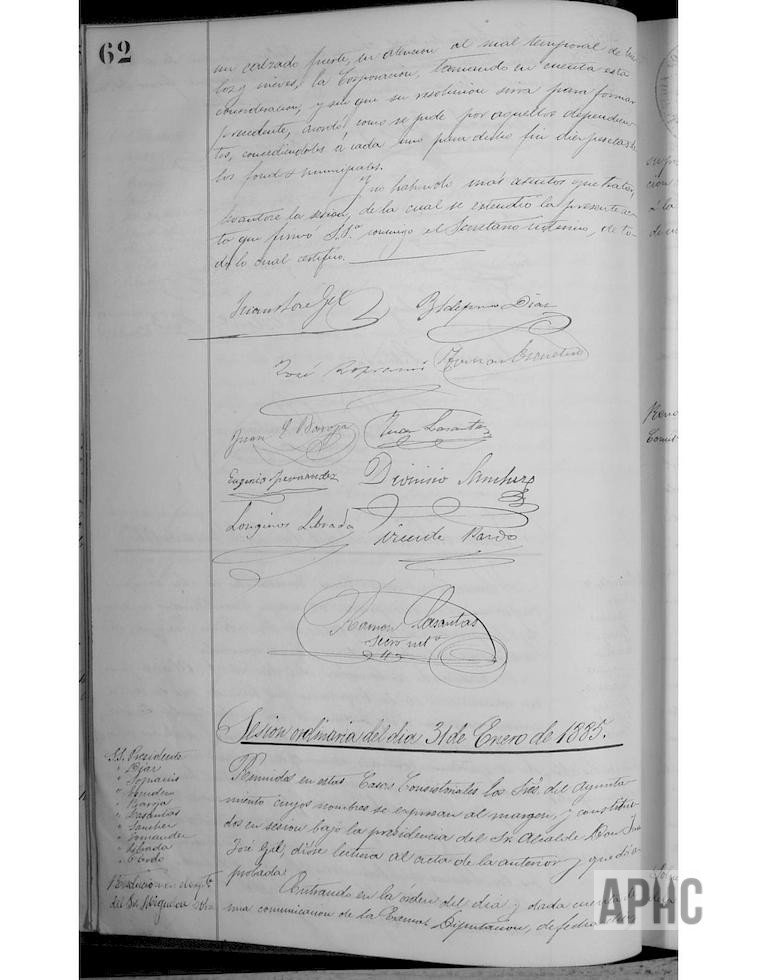 62
un calzado fuerte, en atencion al mal temporal de hie-
los y nieves; la Corporacion, tomando en cuenta esta
consideracion, y sin que su resolucion sirva para formar
precedente, acordó como se pide por aquellos dependien-
tes, concediéndoles á cada uno para dicho fin diez pesetas de
los fondos municipales.
Y no habiendo más asuntos que tratar,
levantose la sesion, de la cual se extendió la presente ac-
ta que firmó S.S.ª conmigo el Secretario interino, de to-
do lo cual certifico.
Juan José Gil
Ildefonso Diaz
José Sopranis
Juan J. Baroja
Juan Lasantas
Eugenio Fernandez
Dionisio Sanchez
Longinos Librada
Vicente Pardo
Ramon Lasantas
Secro. intº
Sesion ordinaria del dia 31 de Enero de 1885.
S.S. Presidente
" Sopranis
" Baroja
" Lasantas
" Sanchez
" Fernandez
" Librada
" Pardo
Reunidos en estas Casas Consistoriales los Sres. del Ayunta-
miento cuyos nombres se expresan al margen, y constitui-
dos en sesion bajo la presidencia del Sr. Alcalde Don Juan
José Gil, diose lectura al acta de la anterior y quedó a-
probada.
del Sr.
Entrando en la órden del dia y dada cuenta de
una comunicacion de la Excma. Diputacion, de fecha
APHC